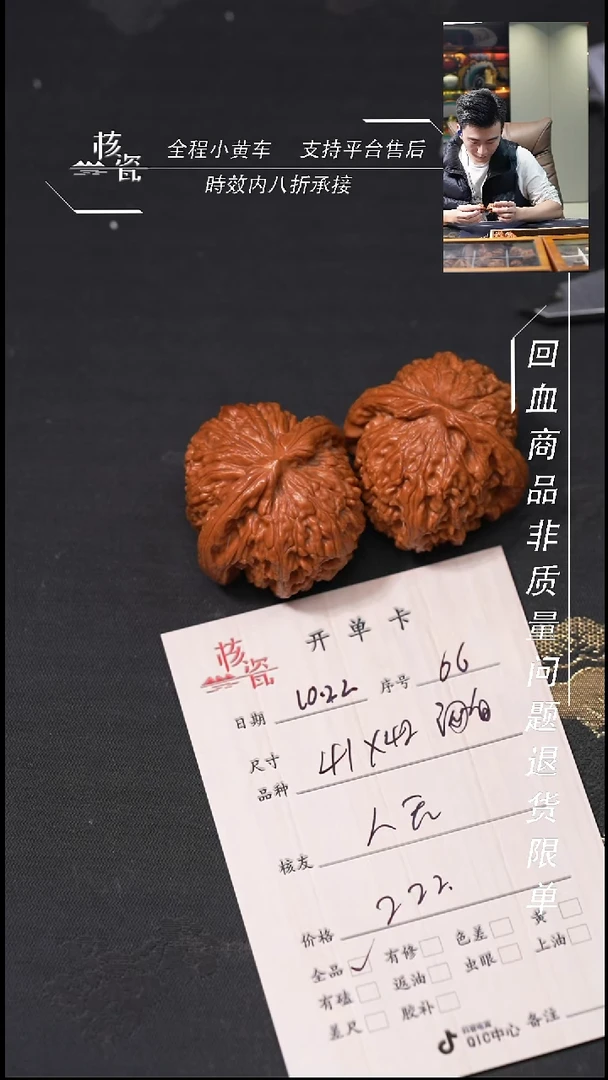 核瓷
全程小黄车 支持平台售后
時效内八折承接
回血商品非质量问题退货限单
核瓷
开单卡
日期 10.22 序号 66
尺寸 41X42
品种
核友
价格 222.
全品 ✓ 有修 色差 黄
有磕 返油 虫眼 上油
差尺 胶补
抖音电商
QIC中心 备注